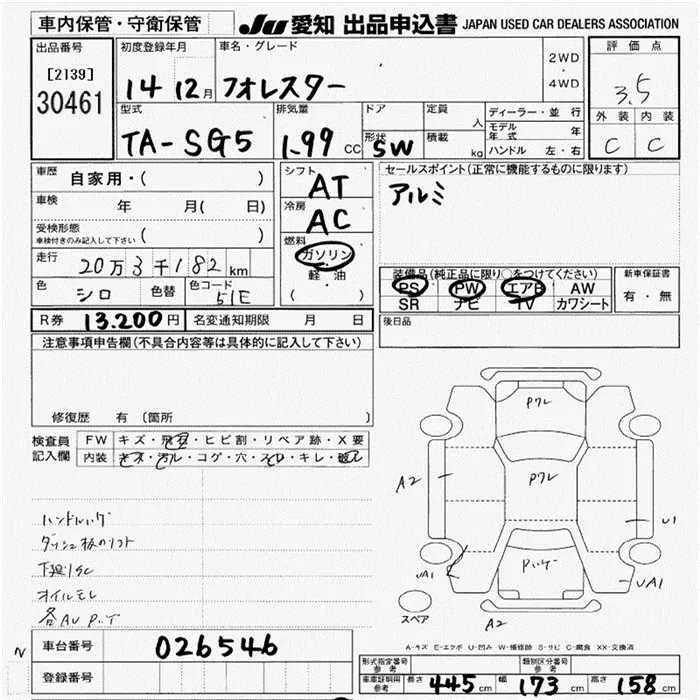 車内保管・守衛保管
JU 愛知 出品申込書 JAPAN USED CAR DEALERS ASSOCIATION
出品番号
[2139]
30461
初度登録年月
14 12月
車名・グレード
フオレスター
2WD
・
4WD
評価点
3.5
外装 内装
C C
型式
TA-SG5
排気量
1.99 CC
ドア
形状
SW
定員
人
積載
kg
ディーラー・並行
モデル年式 年
ハンドル 左・右
車歴
自家用・( )
車検
年 月( 日)
受検形態
車検付きのみ記入して下さい ( )
走行
20万3千182km
色
シロ
色替
色コード
51E
シフト
AT
冷房
AC
燃料
ガソリン
・
軽・油
( )
セールスポイント(正常に機能するものに限ります)
アルミ
装備品(純正品に限り○をつけてください)
PS PW エアB AW
SR ナビ TV カワシート
新車保証書
有・無
後日品
R券 13.200円
名変通知期限 月 日
注意事項申告欄(不具合内容等は具体的に記入して下さい)
修復歴 有 (箇所
検査員
記入欄
FW キズ・飛石・ヒビ割・リペア跡・X要
内装 キズ・汚レ・コゲ・穴・スレ・キレ・破レ
ハンドルハゲ
下廻りSC
オイルモレ
Pワレ
Pワレ
A2
U1
UA1
UA1
A2
スペア
A-キズ E-エクボ U-凹み W-補修跡 S-サビ C-腐食 XX-交換済
N
車台番号
026546
登録番号
形式指定番号
参考
類別区分番号
参考
車庫証明用
参考
長さ 445cm 幅 173cm 高さ 158cm